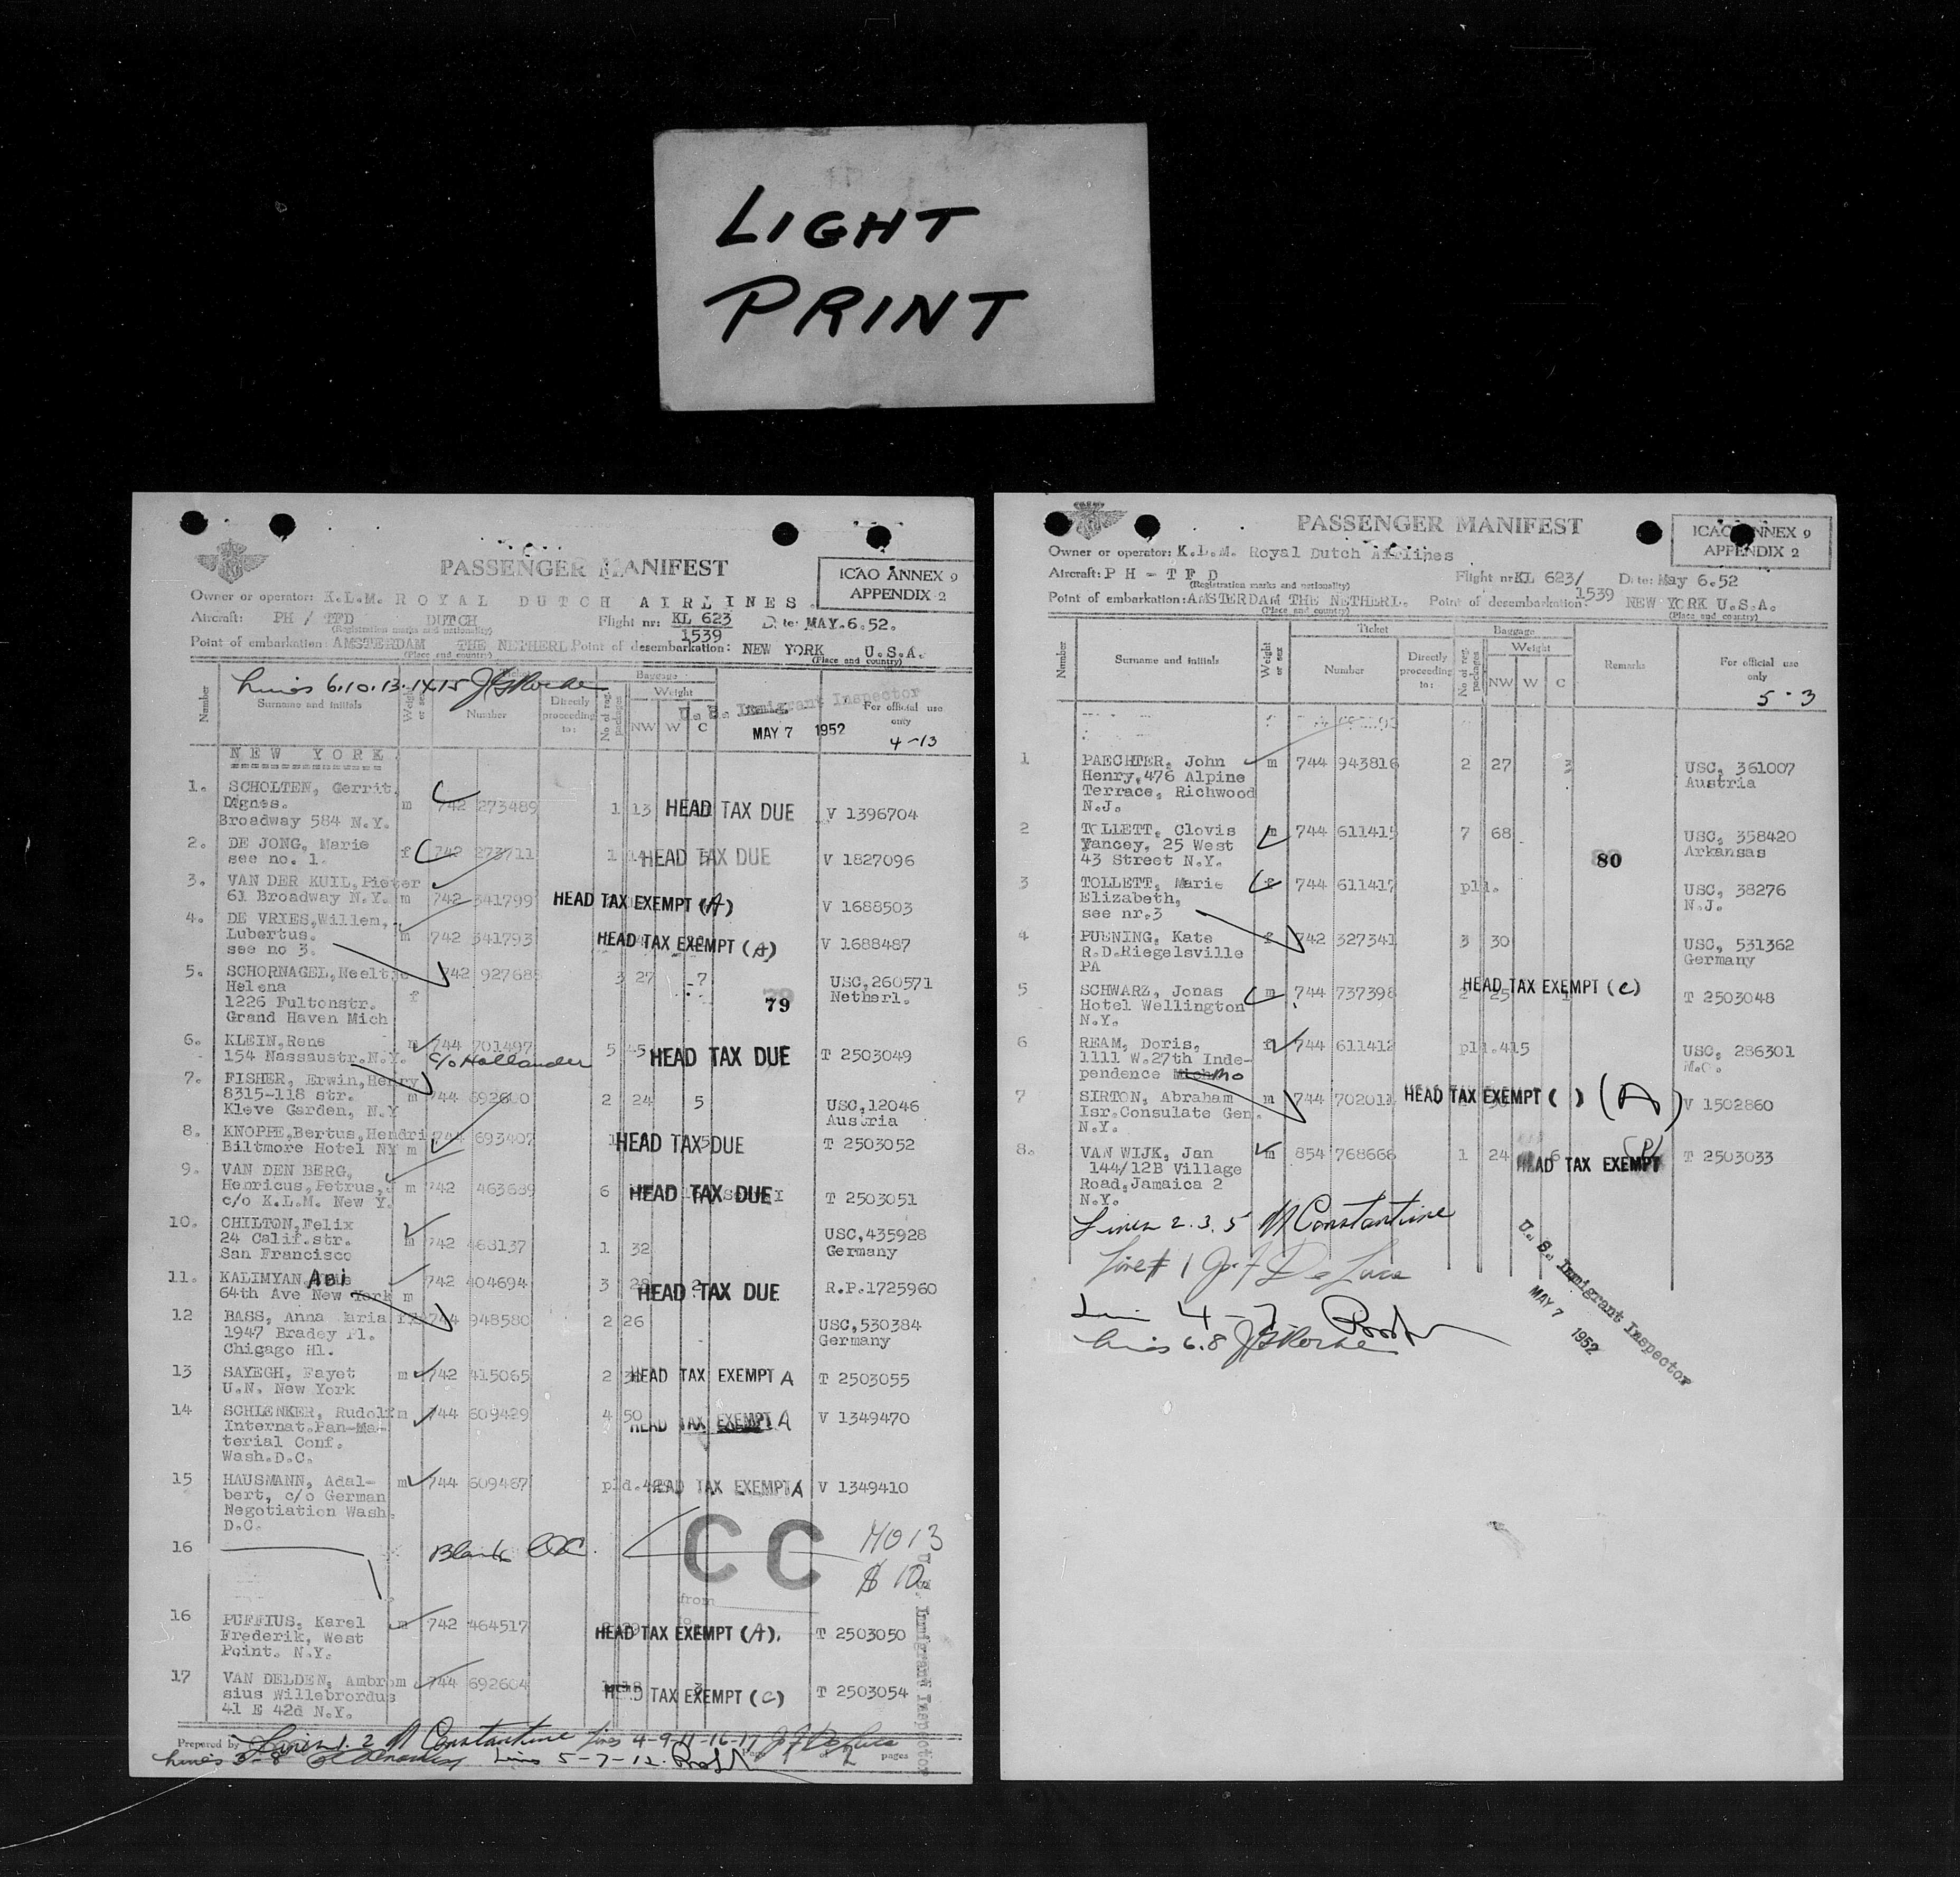 LIGHT
PRINT
PASSENGER MANIFEST
ICAO ANNEX 9
APPENDIX 2
Owner or operator: K.L.M. ROYAL DUTCH AIRLINES.
Aircraft: PH / TFD DUTCH Flight nr: KL 623/1539 Date: MAY.6.52.
(Registration marks and nationality)
Point of embarkation: AMSTERDAM THE NETHERL. Point of desembarkation: NEW YORK U.S.A.
(Place and country) (Place and country)
Lines 6.10.13.14.15
U. S. Immigrant Inspector
MAY 7 1952
Number Surname and initials Weight or sex Number Directly proceeding to: No of reg. packages Baggage Weight NW W C For official use only
4-13
NEW YORK
1. SCHOLTEN, Gerrit. m 742 273489 1 13 HEAD TAX DUE V 1396704
Agnes.
Broadway 584 N.Y.
2. DE JONG, Marie f 742 273711 1 14 HEAD TAX DUE V 1827096
see no. 1.
3. VAN DER KUIL, Pieter
61 Broadway N.Y. m 742 341799 HEAD TAX EXEMPT (A) V 1688503
4. DE VRIES, Willem,
Lubertus. m 742 341793 HEAD TAX EXEMPT (A) V 1688487
see no 3.
5. SCHORNAGEL, Neeltje 742 927688 3 27 7 USC, 260571
Helena f Netherl.
1226 Fultonstr.
Grand Haven Mich
79
6. KLEIN, Rene m 744 701497 5 45 HEAD TAX DUE T 2503049
154 Nassaustr. N.Y. c/o Hollander
7. FISHER, Erwin, Henry
8315-118 str. m 744 692600 2 24 5 USC, 12046
Kleve Garden, N.Y Austria
8. KNOPPE, Bertus, Hendri 744 693407 1 HEAD TAX DUE 5 T 2503052
Biltmore Hotel NY m
9. VAN DEN BERG,
Henricus, Petrus, m 742 463689 6 HEAD TAX DUE T 2503051
c/o K.L.M. New Y.
10. CHILTON, Felix USC, 435928
24 Calif. str. m 742 468137 1 32 Germany
San Francisco
11. KALIMYAN, Abi 742 404694 3 28 2 HEAD TAX DUE R.P. 1725960
64th Ave New York m
12 BASS, Anna Maria 744 948580 2 26 USC, 530384
1947 Bradey Pl. Germany
Chigago Hl.
13 SAYEGH, Fayet m 742 415065 2 HEAD TAX EXEMPT A T 2503055
U.N. New York
14 SCHLENKER, Rudolf m 744 609429 4 50 HEAD TAX EXEMPT A V 1349470
Internat. Pan-Ma-
terial Conf.
Wash. D.C.
15 HAUSMANN, Adal- m 744 609467 pld. HEAD TAX EXEMPT A V 1349410
bert, c/o German
Negotiation Wash.
D.C.
16 Blank OK. CC HO 13
$ 10
from
to
16 PUFFIUS, Karel m 742 464517 HEAD TAX EXEMPT (A). T 2503050
Frederik, West
Point. N.Y.
17 VAN DELDEN, Ambrom 744 692604 HEAD TAX EXEMPT (C) T 2503054
sius Willebrordus
41 E 42d N.Y.
U. S. Immigrant Inspector
Prepared by Lines 1. 2 M Constantine Lines 4-9-11-16-17 J.F. De Luca
Lines 3-8 Lines 5-7-12 Page of 2 pages
PASSENGER MANIFEST
ICAO ANNEX 9
APPENDIX 2
Owner or operator: K.L.M. Royal Dutch Airlines
Aircraft: P H - T F D Flight nr KL 623/1539 Date: May 6.52
(Registration marks and nationality)
Point of embarkation: AMSTERDAM THE NETHERL. Point of desembarkation: NEW YORK U.S.A.
(Place and country) (Place and country)
Number Surname and initials Weight or sex Ticket Number Directly proceeding to: No of reg. packages Baggage Weight NW W C Remarks For official use only
5-3
1 PAECHTER, John m 744 943816 2 27 3 USC, 361007
Henry, 476 Alpine Austria
Terrace, Richwood
N.J.
2 TOLLETT, Clovis m 744 611415 7 68 USC, 358420
Yancey, 25 West Arkansas
43 Street N.Y.
80
3 TOLLETT, Marie f 744 611417 pld. USC, 38276
Elizabeth, N.J.
see nr.3
4 PUENING, Kate f 742 327341 3 30 USC, 531362
R.D. Riegelsville Germany
PA
5 SCHWARZ, Jonas m 744 737398 2 25 HEAD TAX EXEMPT (C) T 2503048
Hotel Wellington
N.Y.
6 REAM, Doris, f 744 611412 pld. 415 USC, 286301
1111 W. 27th Inde- M.O.
pendence Mich Mo
7 SIRTON, Abraham m 744 702011 HEAD TAX EXEMPT ( ) (A) V 1502860
Isr. Consulate Gen.
N.Y.
8. VAN WIJK, Jan m 854 768666 1 24 6 HEAD TAX EXEMPT (P) T 2503033
144/12B Village
Road, Jamaica 2
N.Y.
Lines 2. 3. 5 M Constantine
Line # 1 J.F. De Luca
Lin 4 - 7
Lines 6.8
U. S. Immigrant Inspector
MAY 7 1952